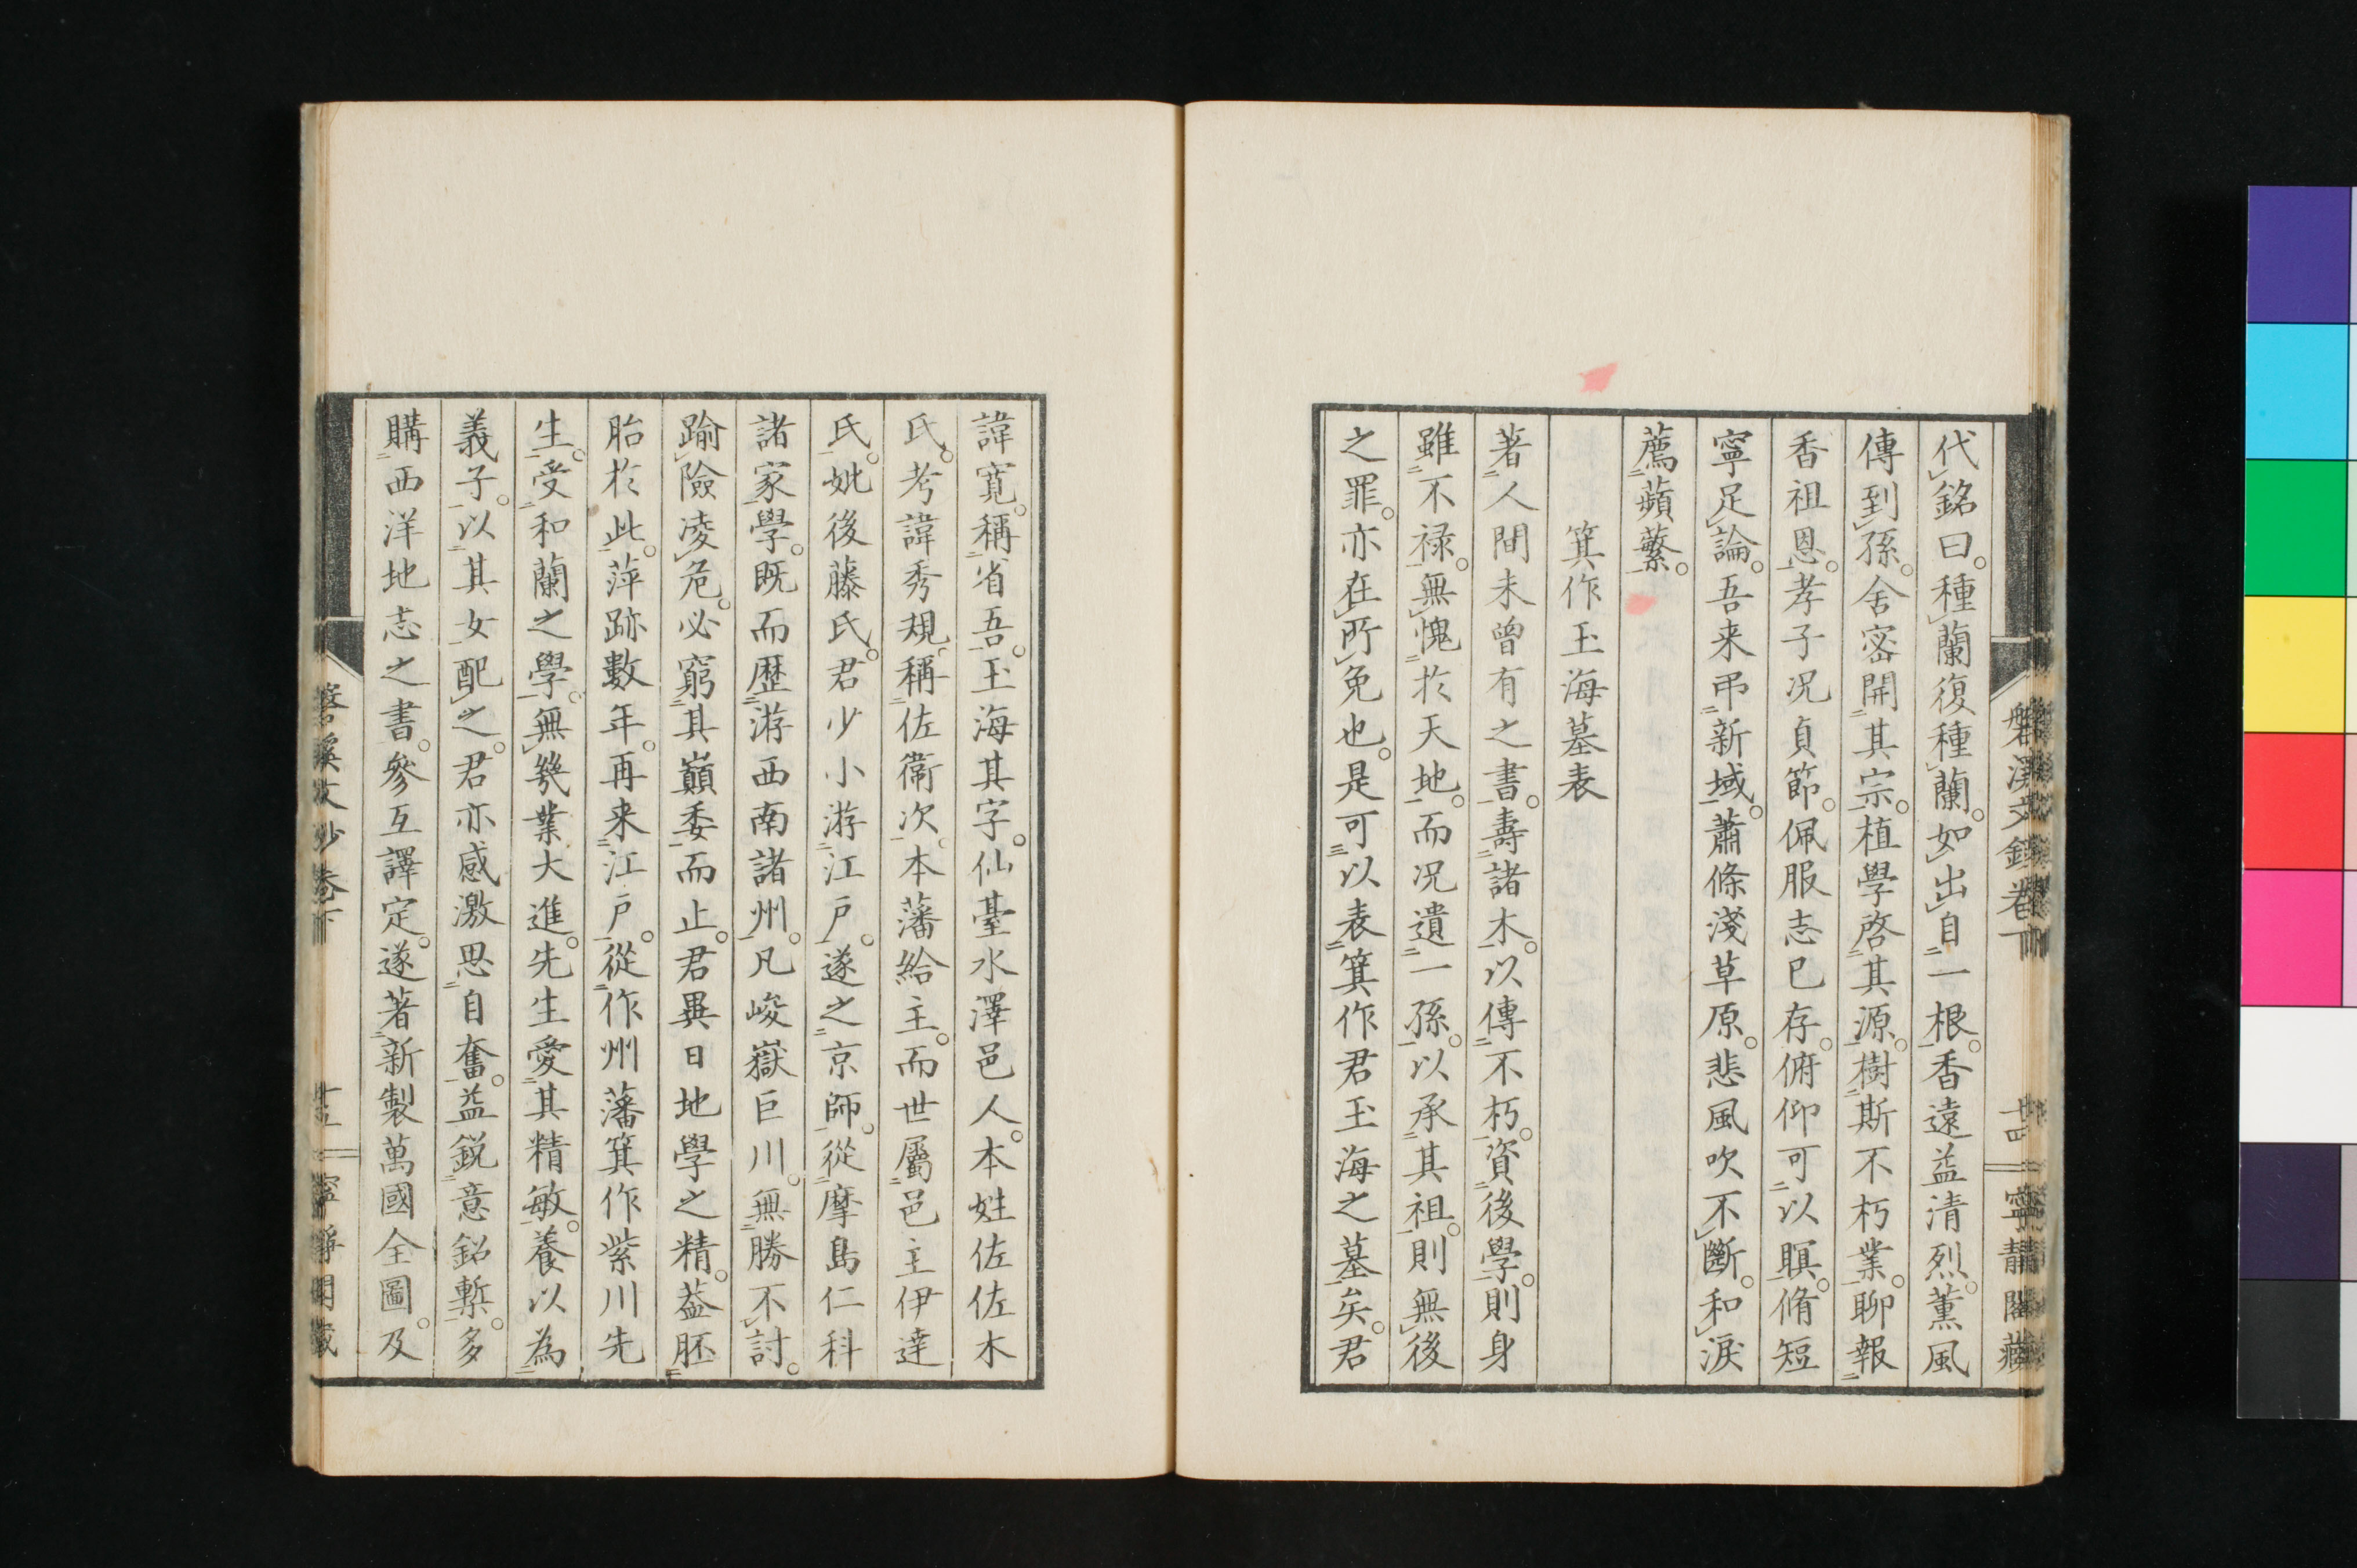 代銘曰。種蘭復種蘭。如出自一根。香遠益清烈。薰風
傳到孫。舍密開其宗。植學啓其源。樹斯不朽業。聊報
香祖恩。孝子況貞節。佩服志已存。俯仰可以瞑。脩短
寧足論。吾来弔新域。蕭條淺草原。悲風吹不斷。和淚
薦蘋蘩。
箕作玉海墓表
著人間未曾有之書。壽諸木。以傳不朽。資後學。則身
雖不禄。無愧於天地。而況遺一孫。以承其祖。則無後
之罪。亦在所免也。是可以表箕作君玉海之墓矣。君
諱寛。稱省吾。玉海其字。仙臺水澤邑人。本姓佐佐木
氏。考諱秀規。稱佐衛次。本藩給主。而世屬邑主伊達
氏。妣後藤氏。君少小游江戸。遂之京師。從摩島仁科
諸家學。既而歴游西南諸州。凡峻嶽巨川。無勝不討。
踰險凌危。必窮其巓委而止。君異日地學之精。葢胚
胎於此。萍跡數年。再来江戸。從作州藩箕作紫川先
生。受和蘭之學。無幾業大進。先生愛其精敏。養以為
義子。以其女配之。君亦感激思自奮。益鋭意鉛槧。多
購西洋地志之書。參互譯定。遂著新製萬國全圖。及
磐溪文鈔卷下
廿四
寧靜閣藏